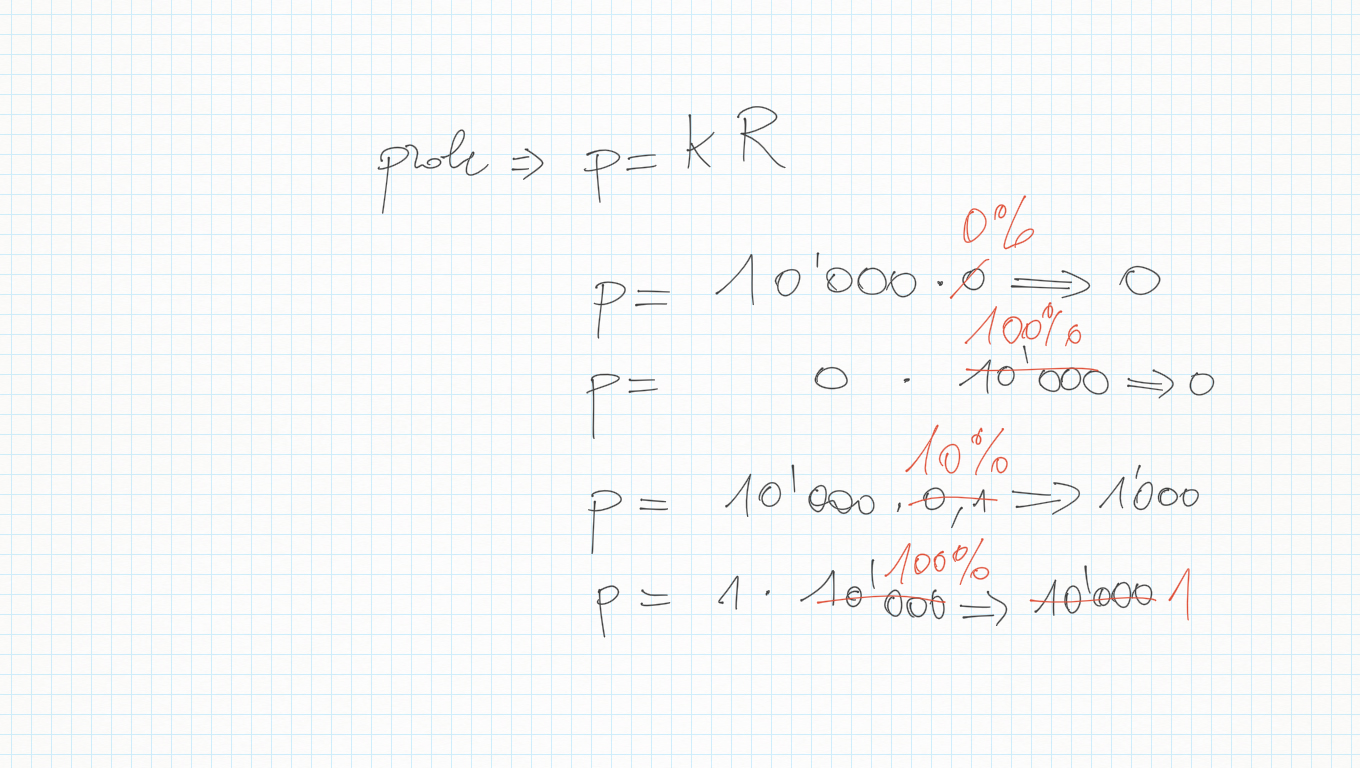 prob => p = k R
0%
p = 10'000 · 0 => 0
100%
p = 0 · 10'000 => 0
10%
p = 10'000 · 0,1 => 1'000
100%
p = 1 · 10'000 => 10'000 1